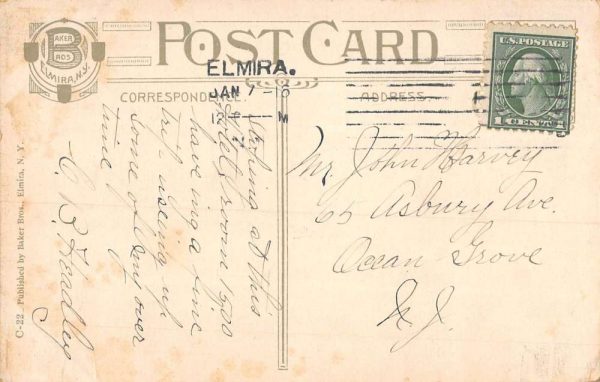 BAKER
B
BROS
ELMIRA, N.Y.
POST CARD
ELMIRA.
JAN 7
M
U.S. POSTAGE
1 CENT 1
CORRESPONDENCE.
ADDRESS.
at this
Hotel room 1500
having a fine
trip using up
some of my over
time
C. B. Headley
Mr. John Harvey
65 Asbury Ave.
Ocean Grove
N. J.
C-22 Published by Baker Bros., Elmira, N. Y.